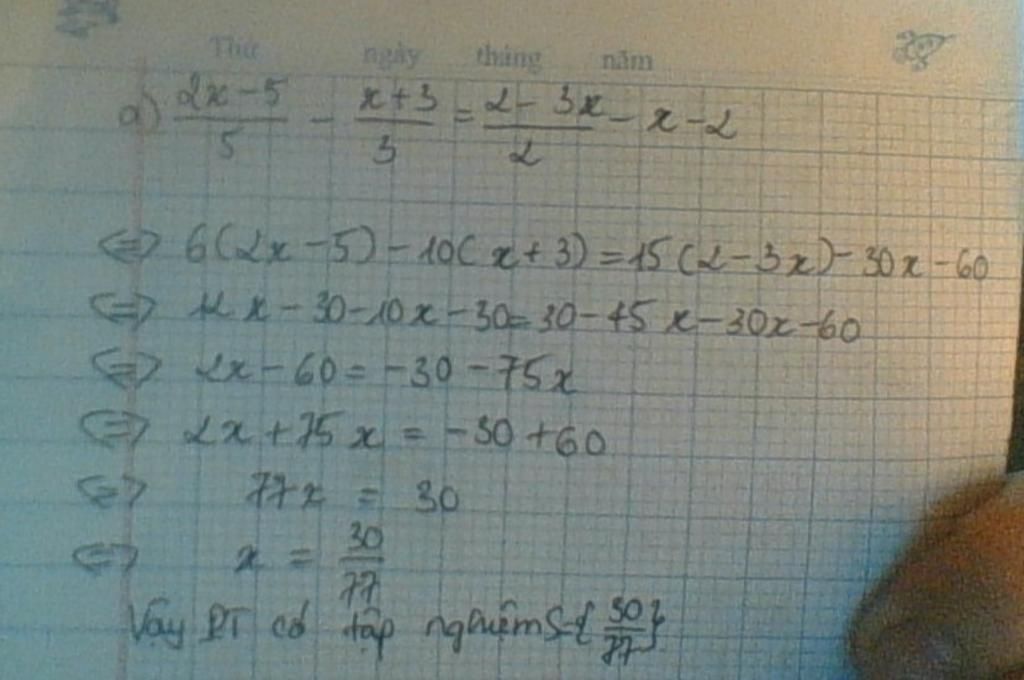 Thứ ngày tháng năm
a) \frac{2x-5}{5} - \frac{x+3}{3} = \frac{2-3x}{2} - x - 2
⇔ 6(2x-5) - 10(x+3) = 15(2-3x) - 30x - 60
⇔ 12x - 30 - 10x - 30 = 30 - 45x - 30x - 60
⇔ 2x - 60 = -30 - 75x
⇔ 2x + 75x = -30 + 60
⇔ 77x = 30
⇔ x = \frac{30}{77}
Vậy PT có tập nghiệm S={\frac{30}{77}}